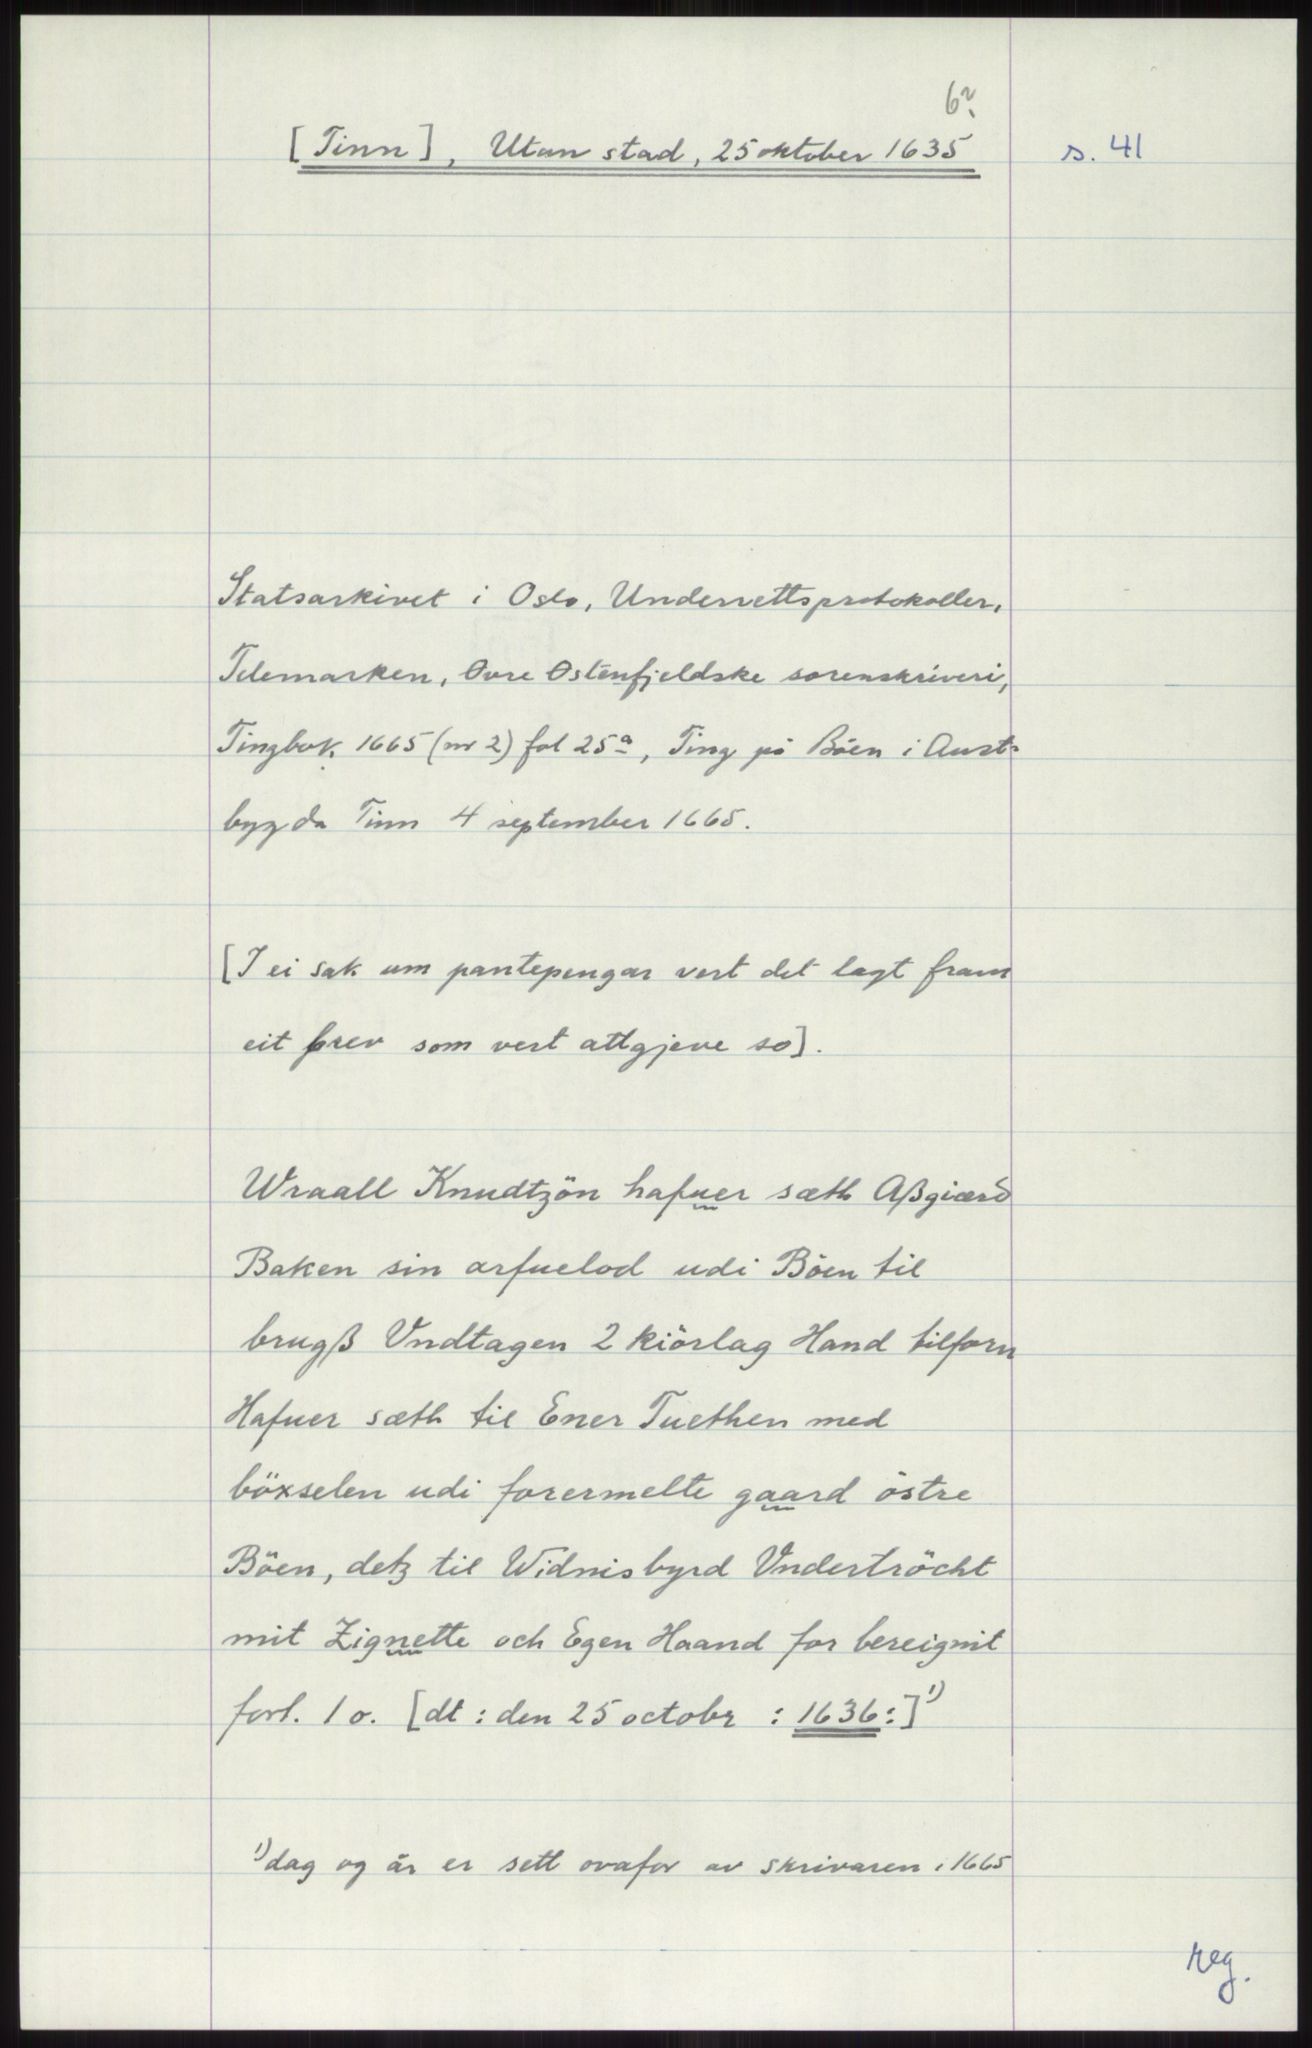 6?
[Tinn], Utan stad, 25 oktober 1635
s. 41
Statsarkivet i Oslo, Underrettsprotokoller,
Telemarken, Øvre Østenfjeldske sorenskriveri,
Tingbok 1665 (nr 2) fol 25a, Ting på Böen i Aust-
bygda Tinn 4 september 1665.
[I ei sak um pantepengar vert det lagt fram
eit brev som vert attgjeve so].
Wraall Knudtzön hafuer sæth Aßgiærd
Baken sin arfuelod udi Böen til
brugß Vndtagen 2 kiörlag Hand tilforn
Hafuer sæth til Ener Tuethen med
böxselen udi forermelte gaard östre
Böen, detz til Widnisbyrd Vndertröcht
mit Zignette och Egen Haand for bereignit
forl. 1 o. [dt : den 25 octobr : 1636:] 1)
1) dag og år er sett ovafor av skrivaren i 1665
reg.